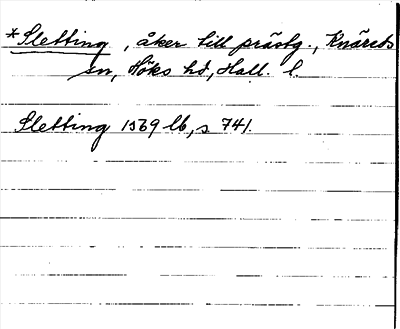 *Sletting, åker till prästg., Knäreds
sn, Höks hd, Hall. l.
Sletting 1569 lb, s 741.